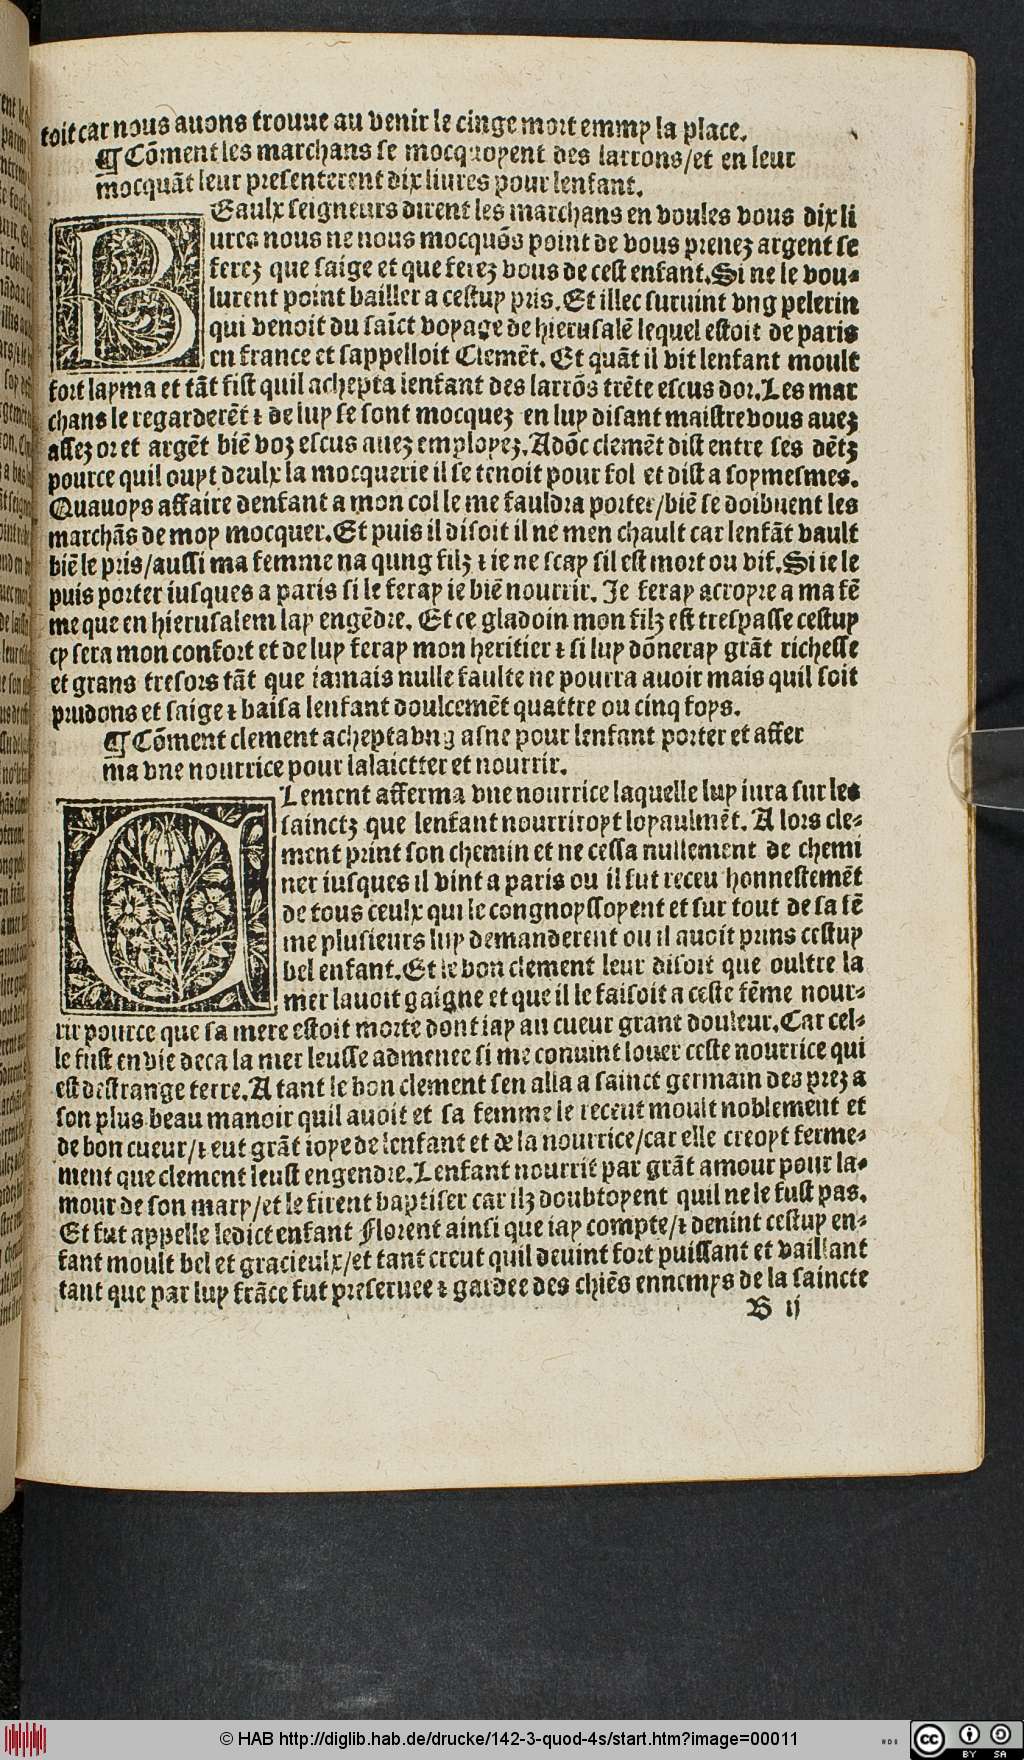 toit car nous auons trouue au venir le cinge mort emmy la place.
¶ Cõment les marchans se mocquoyent des larrons/et en leur
mocquãt leur presenterent dix liures pour lenfant.
BEaulx seigneurs dirent les marchans en voules vous dix li
ures nous ne nous mocquõs point de vous prenez argent se
ferez que saige et que ferez vous de cest enfant. Si ne le vou-
lurent point bailler a cestuy pris. Et illec suruint vng pelerin
qui venoit du saĩct voyage de hierusalẽ lequel estoit de paris
en france et sappelloit Clemẽt. Et quãt il vit lenfant moult
fort layma et tãt fist quil achepta lenfant des larrõs trẽte escus dor. Les mar
chans le regarderẽt ⁊ de luy se sont mocquez en luy disant maistre vous auez
assez or et argẽt biẽ voz escus auez employez. Adõc clemẽt dist entre ses dẽtz
pource quil ouyt deulx la mocquerie il se tenoit pour fol et dist a soymesmes.
Quauoys affaire denfant a mon col le me fauldra porter/biẽ se doibuent les
marchãs de moy mocquer. Et puis il disoit il ne men chault car lenfãt vault
biẽ le pris/aussi ma femme na qung filz ⁊ ie ne scay sil est mort ou vif. Si ie le
puis porter iusques a paris si le feray ie biẽ nourrir. Je feray acroyre a ma fẽ
me que en hierusalem lay engẽdre. Et ce gladoin mon filz est trespasse cestuy
cy sera mon confort et de luy feray mon heritier ⁊ si luy dõneray grãt richesse
et grans tresors tãt que iamais nulle faulte ne pourra auoir mais quil soit
prudons et saige ⁊ baisa lenfant doulcemẽt quattre ou cinq foys.
¶ Cõment clement achepta vng asne pour lenfant porter et affer
ma vne nourrice pour lalaictter et nourrir.
CLement afferma vne nourrice laquelle luy iura sur les
sainctz que lenfant nourriroyt loyaulmẽt. A lors cle-
ment print son chemin et ne cessa nullement de chemi
ner iusques il vint a paris ou il fut receu honnestemẽt
de tous ceulx qui le congnoyssoyent et sur tout de sa fẽ
me plusieurs luy demanderent ou il auoit prins cestuy
bel enfant. Et le bon clement leur disoit que oultre la
mer lauoit gaigne et que il le faisoit a ceste fẽme nour-
rir pource que sa mere estoit morte dont iay au cueur grant douleur. Car cel-
le fust en vie deca la mer leusse admenee si me conuint louer ceste nourrice qui
est destrange terre. A tant le bon clement sen alla a sainct germain des prez a
son plus beau manoir quil auoit et sa femme le receut moult noblement et
de bon cueur/⁊ eut grãt ioye de lenfant et de la nourrice/car elle creoyt ferme-
ment que clement leust engendre. Lenfant nourrit par grãt amour pour la-
mour de son mary/et le firent baptiser car ilz doubtoyent quil ne le fust pas.
Et fut appelle ledict enfant Florent ainsi que iay compte/⁊ deuint cestuy en-
fant moult bel et gracieulx/et tant creut quil deuint fort puissant et vaillant
tant que par luy frãce fut preseruee ⁊ gardee des chiẽs ennemys de la saincte
B ij
© HAB http://diglib.hab.de/drucke/142-3-quod-4s/start.htm?image=00011
cc BY SA